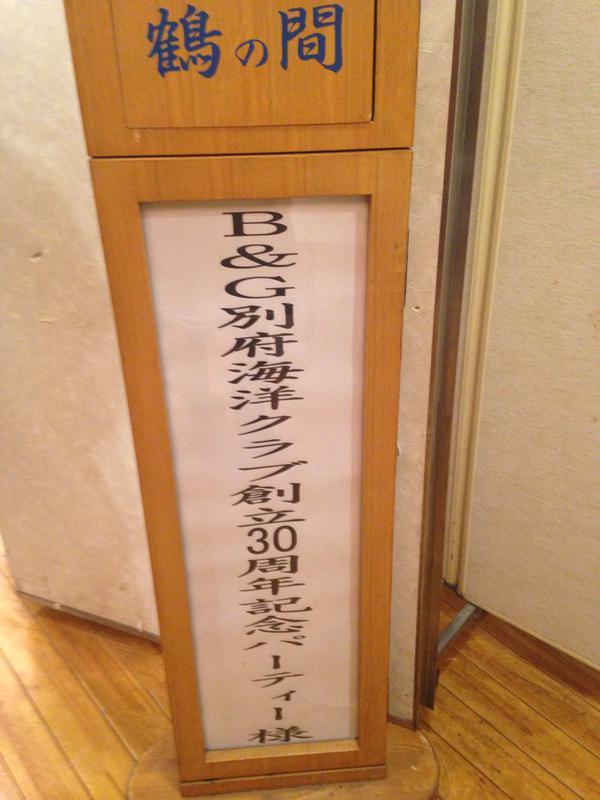 鶴の間
B&G別府海洋クラブ創立30周年記念パーティー様